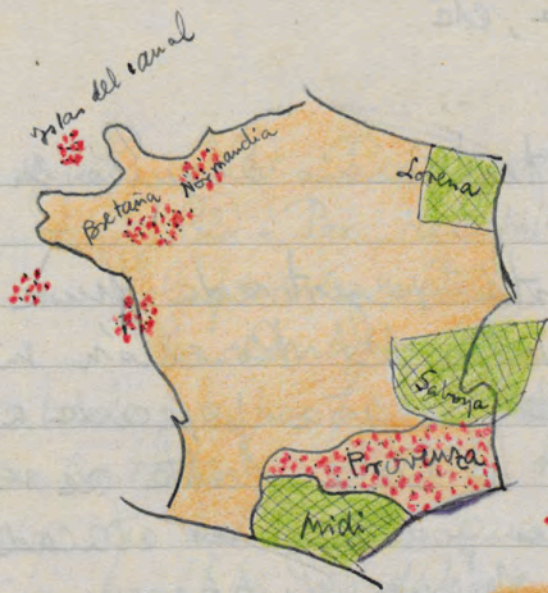 Islas del canal
Normandia
Bretaña
Lorena
Saboya
Provenza
Midi